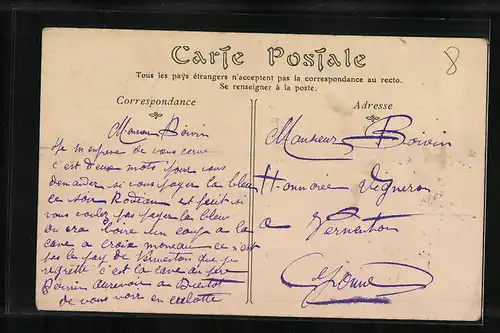 8
Carte Postale
Tous les pays étrangers n'acceptent pas la correspondance au recto.
Se renseigner à la poste.
Correspondance
Monsieur Boivin
Je m'enprese de vous ecrire
c'est deux mots pour vous
demander si vous payer la bleu
ce soir et peut si
vous voulez pas payer la bleu
on ira boire un coup a la
cave a croix moneau ce n'est
pas le pay de Vermenton que je
regrette c'est la cave au père
Boivin aurevoir a Bientot
de vous voir en culotte
Adresse
Monsieur Boivin
Honnoree Vigneron
a Vermenton
Yonne